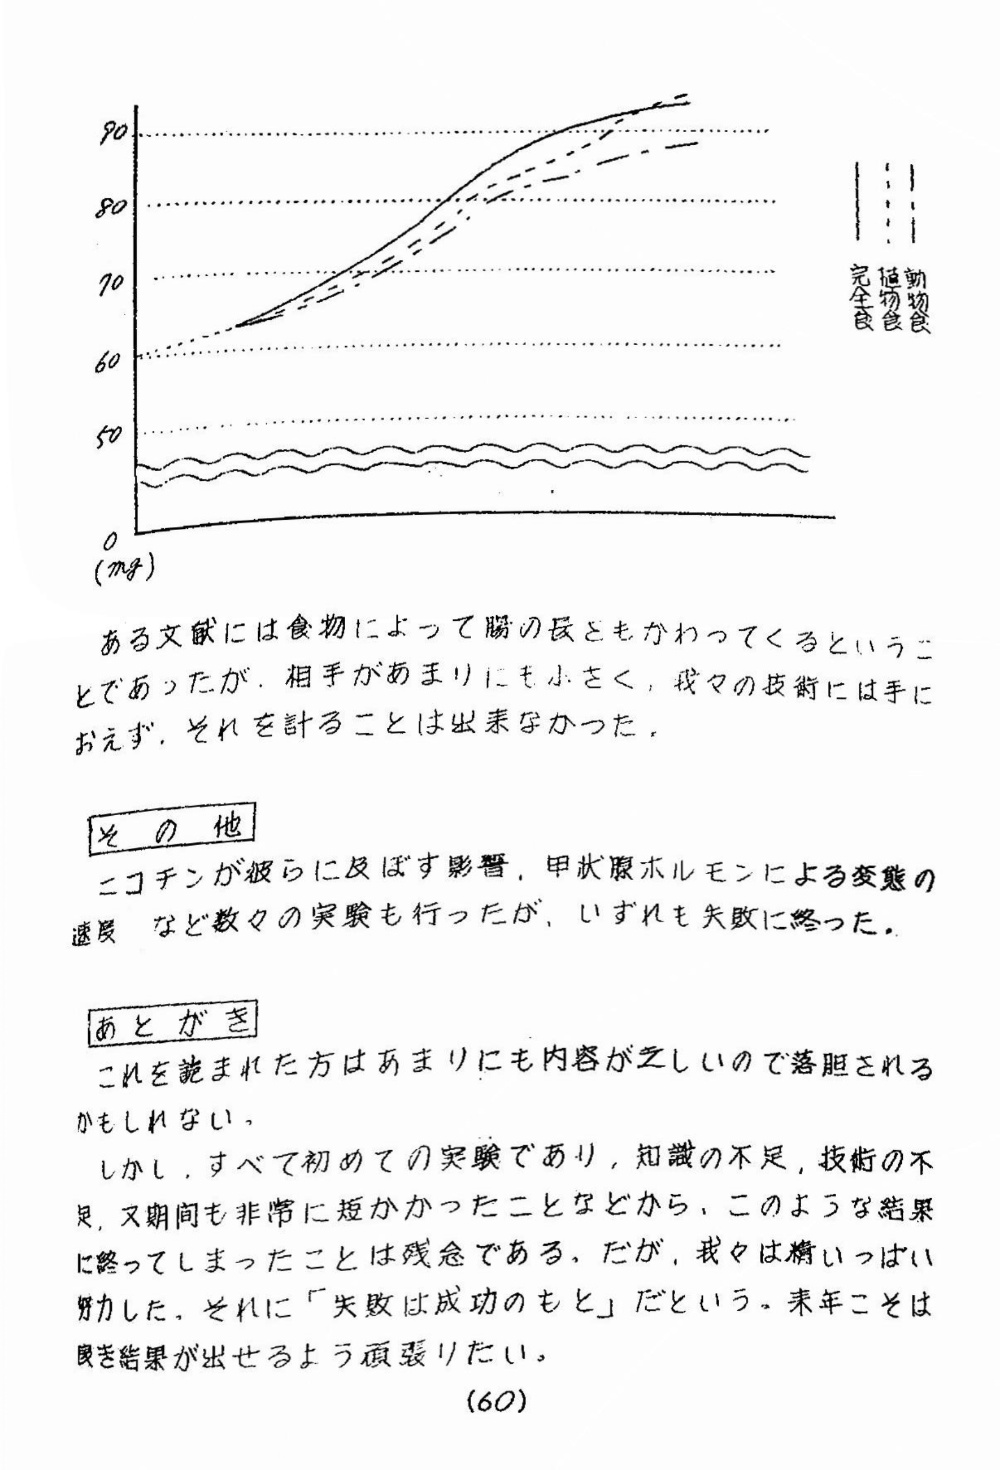 90
80
70
60
50
0
(mg)
動物食
植物食
完全食
ある文献には食物によって腸の長さもかわってくるというこ
とであったが、相手があまりにも小さく、我々の技術には手に
おえず、それを計ることは出来なかった。
その他
ニコチンが彼らに及ぼす影響、甲状腺ホルモンによる変態の
速度 など数々の実験も行ったが、いずれも失敗に終った。
あとがき
これを読まれた方はあまりにも内容が乏しいので落胆される
かもしれない。
しかし、すべて初めての実験であり、知識の不足、技術の不
足、又期間も非常に短かかったことなどから、このような結果
に終ってしまったことは残念である。だが、我々は精いっぱい
努力した。それに「失敗は成功のもと」だという。来年こそは
良き結果が出せるよう頑張りたい。
(60)